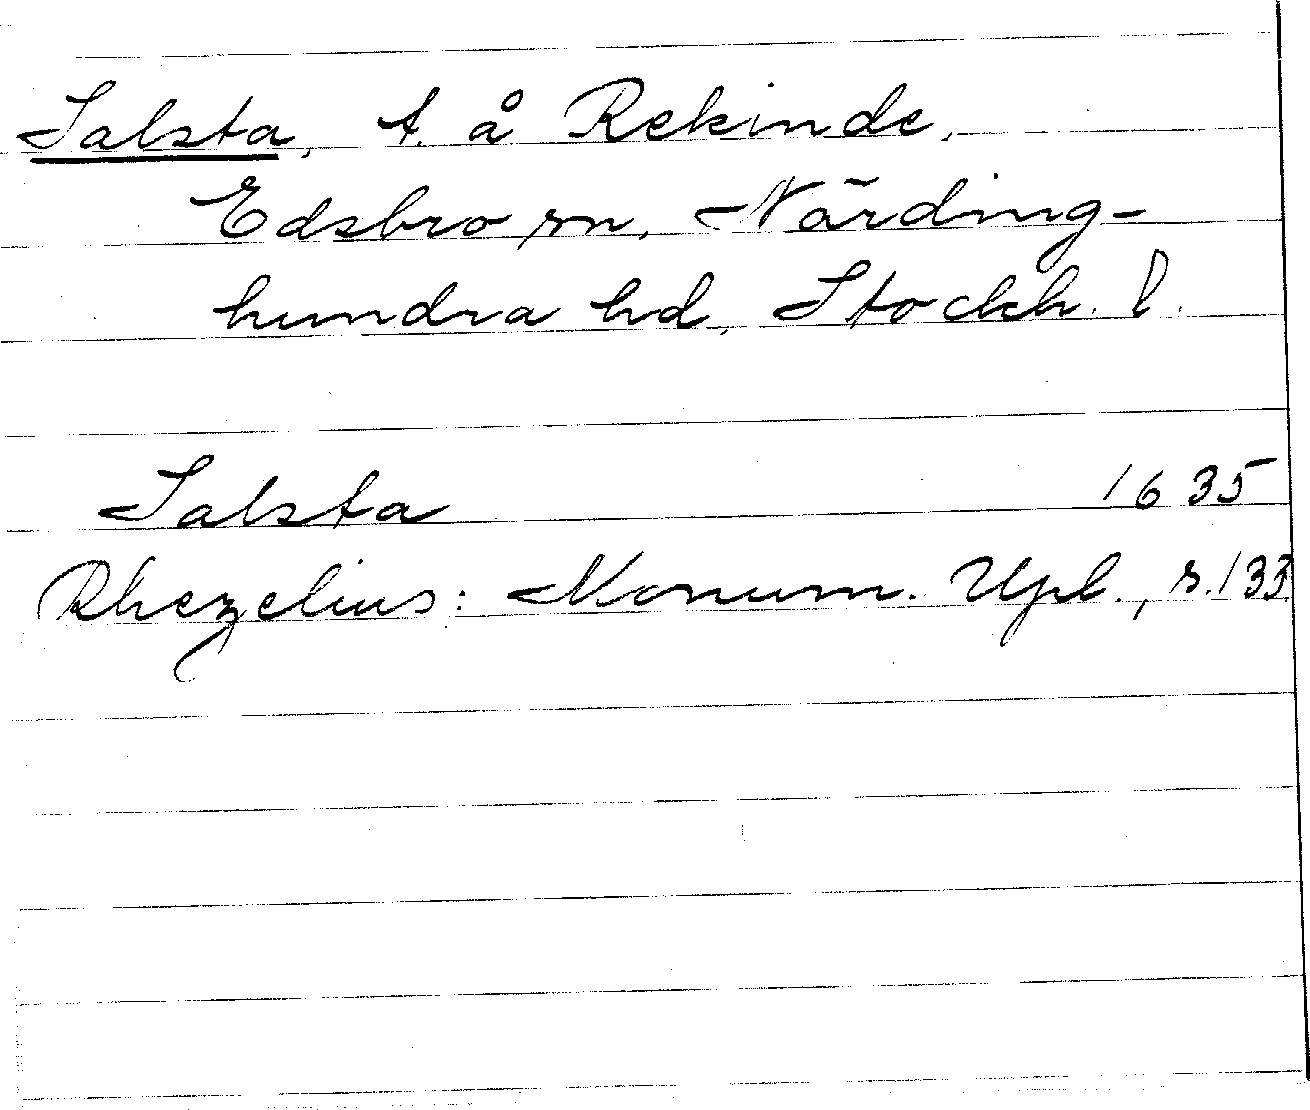 Salsta, t. å Rekinde,
Edsbro sn, Närding-
hundra hd, Stockh. l.
Salsta 1635
Rhezelius: Monum. Upl., s. 133